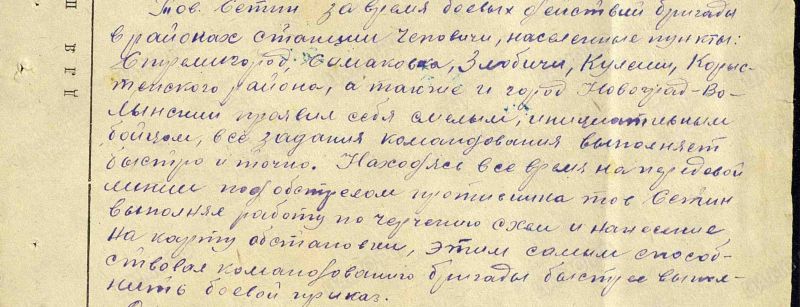 Тов. Сетин за время боевых действий бригады
в районах станции Чеповичи, населенные пункты:
Стремигород, Симаковка, Злобичи, Кулеши, Корыс-
тенского района, а также и город Новоград-Во-
лынский проявил себя смелым, инициативным
бойцом, все задания командования выполняет
быстро и точно. Находясь все время на передовой
линии под обстрелом противника тов Сетин
выполняя работу по черчению схем и нанесение
на карту обстановки, этим самым способ-
ствовал командованию бригады быстрее выпол-
нить боевой приказ.
П
В Г Д